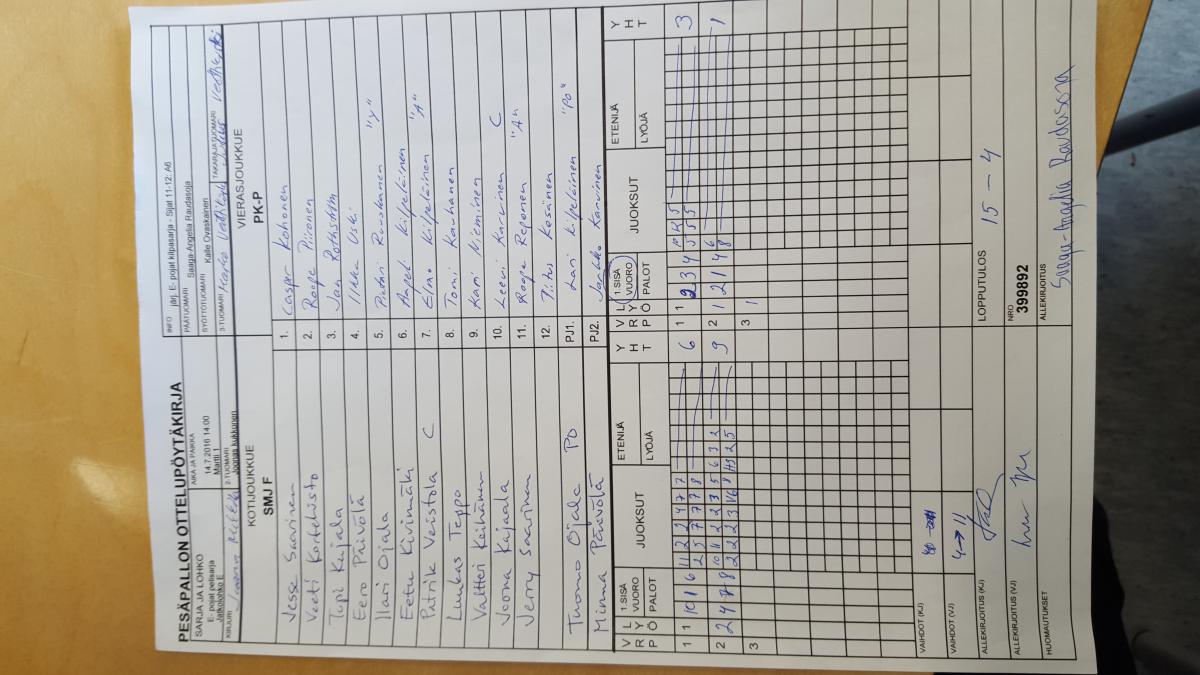 PESÄPALLON OTTELUPÖYTÄKIRJA
INFO järj. E- pojat kilpasarja - Sijat 11-12: A6
SARJA JA LOHKO
E- pojat pelisarja
Jatkolohko E
AIKA JA PAIKKA
14.7.2016 14:00
Martti 1
PÄÄTUOMARI Saaga-Angelia Raudasoja
SYÖTTÖTUOMARI Kalle Ovaskainen
KIRJURI
2-TUOMARI Joonas kukkonen
3-TUOMARI
TAKARAJATUOMARI
KOTIJOUKKUE
SMJ F
VIERASJOUKKUE
PK-P
Jesse Saarinen
1. Caspar Kohonen
Veeti Kortehisto
2. Roope Piironen
Topi Kujala
3. Jan Rothström
Eero Päivölä
4. Iikka Uski
Ilari Ojala
5. Petri Ruuskanen "Y"
Eetu Kivimäki
6. Aapeli Kilpeläinen "A"
Patrik Veistola C
7. Elmo Kilpeläinen
Luukas Teppo
8. Tomi Kauhanen
Valtteri Keihänen
9. Kari Nieminen
Joona Kajaala
10. Leevi Karvinen C
Jerry Saarinen
11. Roope Reponen "A"
12. Titus Kosänen
Tuomo Ojala PO
PJ1. Lari Kilpeläinen "Po"
Minna Päivölä
PJ2. Jarkko Karvinen
VRP LYÖ 1.SISÄ VUORO PALOT JUOKSUT ETENIJÄ LYÖJÄ YHT
VRP LYÖ 1.SISÄ VUORO PALOT JUOKSUT ETENIJÄ LYÖJÄ YHT
1 1 10 1 6 11 2 2 4 7 7 6
2 5 7 7 7 8
1 1 2 3 4 3
5 5 5
2 2 4 8 10 11 2 2 3 5 6 3 2 9
2 2 2 3 8
2 1 2 1 4 6 1
8
3
3 1
VAIHDOT (KJ)
VAIHDOT (VJ) 4→11
ALLEKIRJOITUS (KJ)
LOPPUTULOS 15 - 4
ALLEKIRJOITUS (VJ)
NRO 399892
HUOMAUTUKSET
ALLEKIRJOITUS
Saaga-Angelia Raudasoja